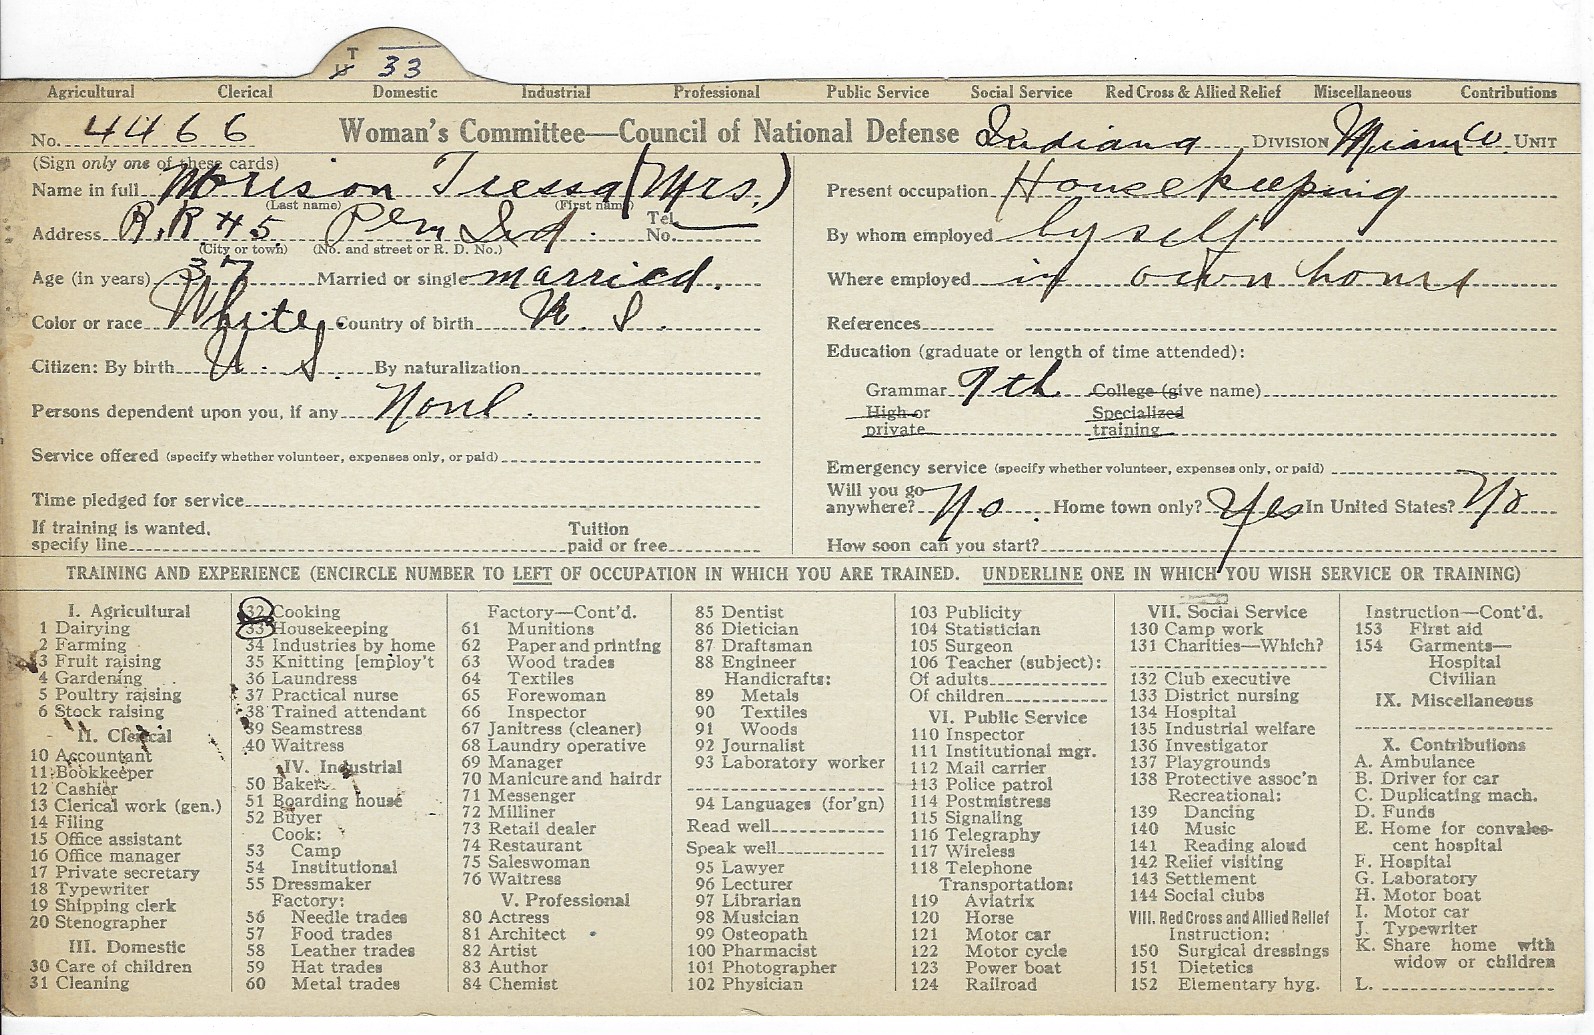 T 33
Agricultural Clerical Domestic Industrial Professional Public Service Social Service Red Cross & Allied Relief Miscellaneous Contributions
No. 4466 Woman's Committee—Council of National Defense Indiana DIVISION Miami Co. UNIT
(Sign only one of these cards)
Name in full Morison Tressa (Mrs.)
(Last name) (First name)
Address R.R #5. Peru Ind. Tel. No.
(City or town) (No. and street or R. D. No.)
Age (in years) 37 Married or single married.
Color or race White Country of birth U. S.
Citizen: By birth U. S. By naturalization
Persons dependent upon you, if any None.
Service offered (specify whether volunteer, expenses only, or paid)
Time pledged for service
If training is wanted, specify line Tuition paid or free
Present occupation Housekeeping
By whom employed by self
Where employed in own home
References
Education (graduate or length of time attended):
Grammar 7th College (give name)
High or private Specialized training
Emergency service (specify whether volunteer, expenses only, or paid)
Will you go anywhere? No. Home town only? Yes In United States? No
How soon can you start?
TRAINING AND EXPERIENCE (ENCIRCLE NUMBER TO LEFT OF OCCUPATION IN WHICH YOU ARE TRAINED. UNDERLINE ONE IN WHICH YOU WISH SERVICE OR TRAINING)
I. Agricultural
1 Dairying
2 Farming
3 Fruit raising
4 Gardening
5 Poultry raising
6 Stock raising
II. Clerical
10 Accountant
11 Bookkeeper
12 Cashier
13 Clerical work (gen.)
14 Filing
15 Office assistant
16 Office manager
17 Private secretary
18 Typewriter
19 Shipping clerk
20 Stenographer
III. Domestic
30 Care of children
31 Cleaning
32 Cooking
33 Housekeeping
34 Industries by home
35 Knitting [employ't
36 Laundress
37 Practical nurse
38 Trained attendant
39 Seamstress
40 Waitress
IV. Industrial
50 Baker
51 Boarding house
52 Buyer
Cook:
53 Camp
54 Institutional
55 Dressmaker
Factory:
56 Needle trades
57 Food trades
58 Leather trades
59 Hat trades
60 Metal trades
Factory—Cont'd.
61 Munitions
62 Paper and printing
63 Wood trades
64 Textiles
65 Forewoman
66 Inspector
67 Janitress (cleaner)
68 Laundry operative
69 Manager
70 Manicure and hairdr
71 Messenger
72 Milliner
73 Retail dealer
74 Restaurant
75 Saleswoman
76 Waitress
V. Professional
80 Actress
81 Architect
82 Artist
83 Author
84 Chemist
85 Dentist
86 Dietician
87 Draftsman
88 Engineer
Handicrafts:
89 Metals
90 Textiles
91 Woods
92 Journalist
93 Laboratory worker
94 Languages (for'gn)
Read well
Speak well
95 Lawyer
96 Lecturer
97 Librarian
98 Musician
99 Osteopath
100 Pharmacist
101 Photographer
102 Physician
103 Publicity
104 Statistician
105 Surgeon
106 Teacher (subject):
Of adults
Of children
VI. Public Service
110 Inspector
111 Institutional mgr.
112 Mail carrier
113 Police patrol
114 Postmistress
115 Signaling
116 Telegraphy
117 Wireless
118 Telephone
Transportation:
119 Aviatrix
120 Horse
121 Motor car
122 Motor cycle
123 Power boat
124 Railroad
VII. Social Service
130 Camp work
131 Charities—Which?
132 Club executive
133 District nursing
134 Hospital
135 Industrial welfare
136 Investigator
137 Playgrounds
138 Protective assoc'n
Recreational:
139 Dancing
140 Music
141 Reading aloud
142 Relief visiting
143 Settlement
144 Social clubs
VIII. Red Cross and Allied Relief
Instruction:
150 Surgical dressings
151 Dietetics
152 Elementary hyg.
Instruction—Cont'd.
153 First aid
154 Garments—
Hospital
Civilian
IX. Miscellaneous
X. Contributions
A. Ambulance
B. Driver for car
C. Duplicating mach.
D. Funds
E. Home for convales-
cent hospital
F. Hospital
G. Laboratory
H. Motor boat
I. Motor car
J. Typewriter
K. Share home with
widow or children
L.